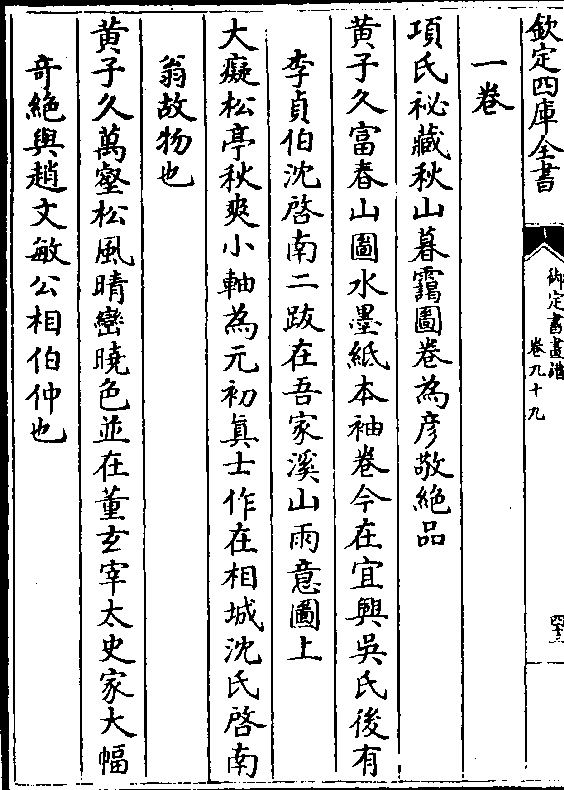 欽定四庫全書
御定書畫譜
卷九十九
一卷
項氏祕藏秋山暮靄圖卷為彦敬絶品
黄子久富春山圖水墨紙本袖卷今在宜興吳氏後有
李貞伯沈啓南二跋在吾家溪山雨意圖上
大癡松亭秋爽小軸為元初真士作在相城沈氏啓南
翁故物也
黄子久萬壑松風晴巒曉色並在董玄宰太史家大幅
奇絶與趙文敏公相伯仲也